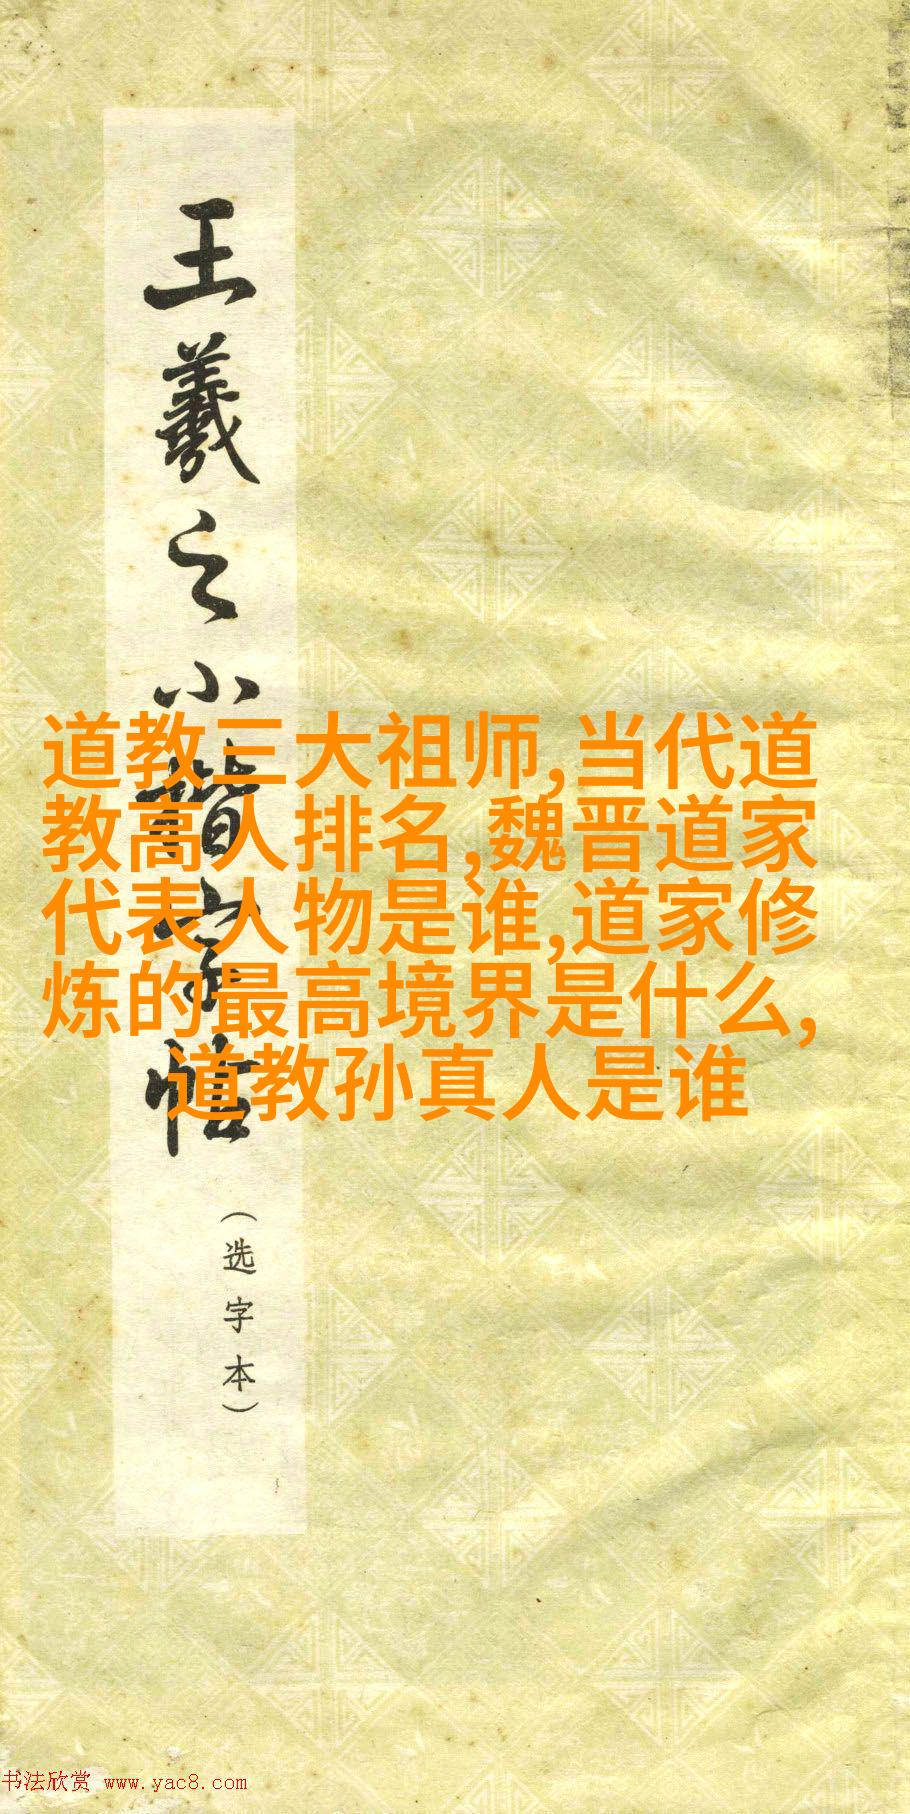 王羲之小楷字帖
(选字本)
道教三大祖师,当代道
教高人排名,魏晋道家
代表人物是谁,道家修
炼的最高境界是什么,
道教孙真人是谁
书法欣赏 www.yac8.com